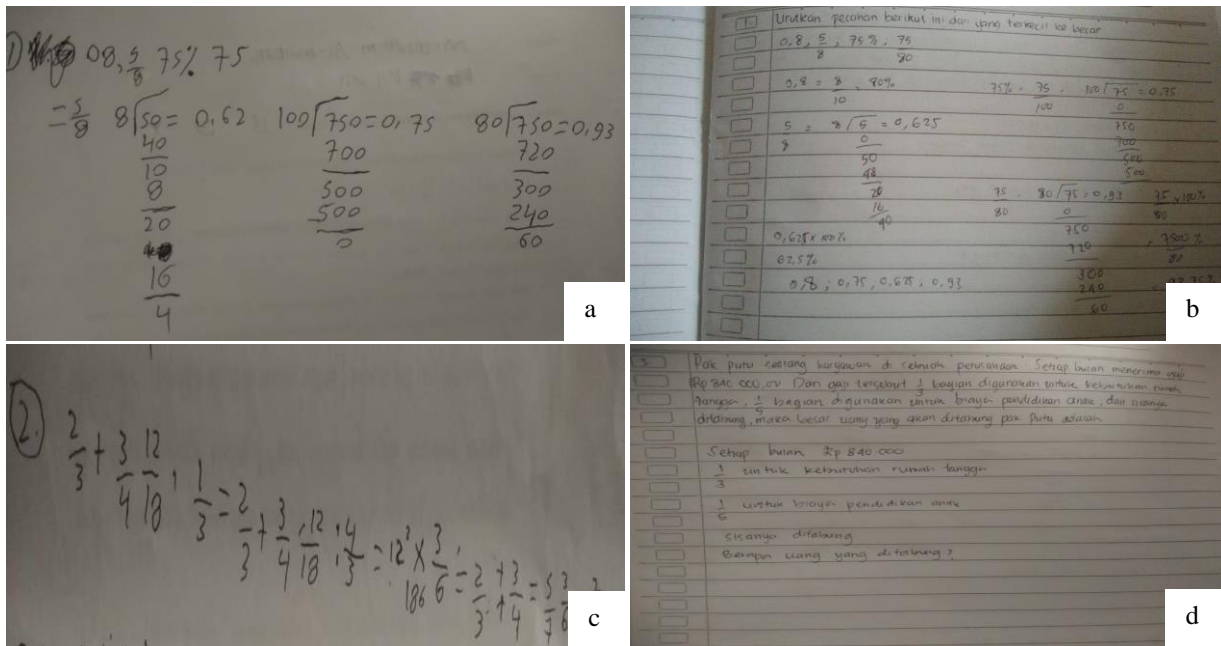 1) 08, 5/8 75% 75
= 5/8 8√50 = 0,62 100√750 = 0,75 80√750 = 0,93
40 700 720
10 500 300
8 500 240
20 0 60
16
4
a
1. Urutkan pecahan berikut ini dari yang terkecil ke besar
0,8, 5/8, 75%, 75/80
0,8 = 8/10 80% 75% = 75/100 100√75 = 0,75
0
5/8 = 8√5 = 0,625 750
0 700
50 500
48 500
20 75/80 80√75 = 0,93 75/80 x 100%
16 0
40 750
0,625 x 100% 720 7500/80 %
62,5% 300
0,8 ; 0,75, 0,625, 0,93 240
60
b
2.
2/3 + 3/4 12/18 : 1/3 = 2/3 + 3/4 12/18 : 4/3 = 12 x 3/6 = 2/3 + 3/4 = 5/7
c
3 Pak putu seorang karyawan di sebuah perusahaan. Setiap bulan menerima gaji
Rp 840.000,00 Dari gaji tersebut 1/3 bagian digunakan untuk kebutuhan rumah
tangga, 1/5 bagian digunakan untuk biaya pendidikan anak, dan sisanya
ditabung, maka besar uang yang akan ditabung pak Putu adalah
Setiap bulan Rp 840.000
1/3 untuk kebutuhan rumah tangga
1/5 untuk biaya pendidikan anak
sisanya ditabung
Berapa uang yang ditabung?
d